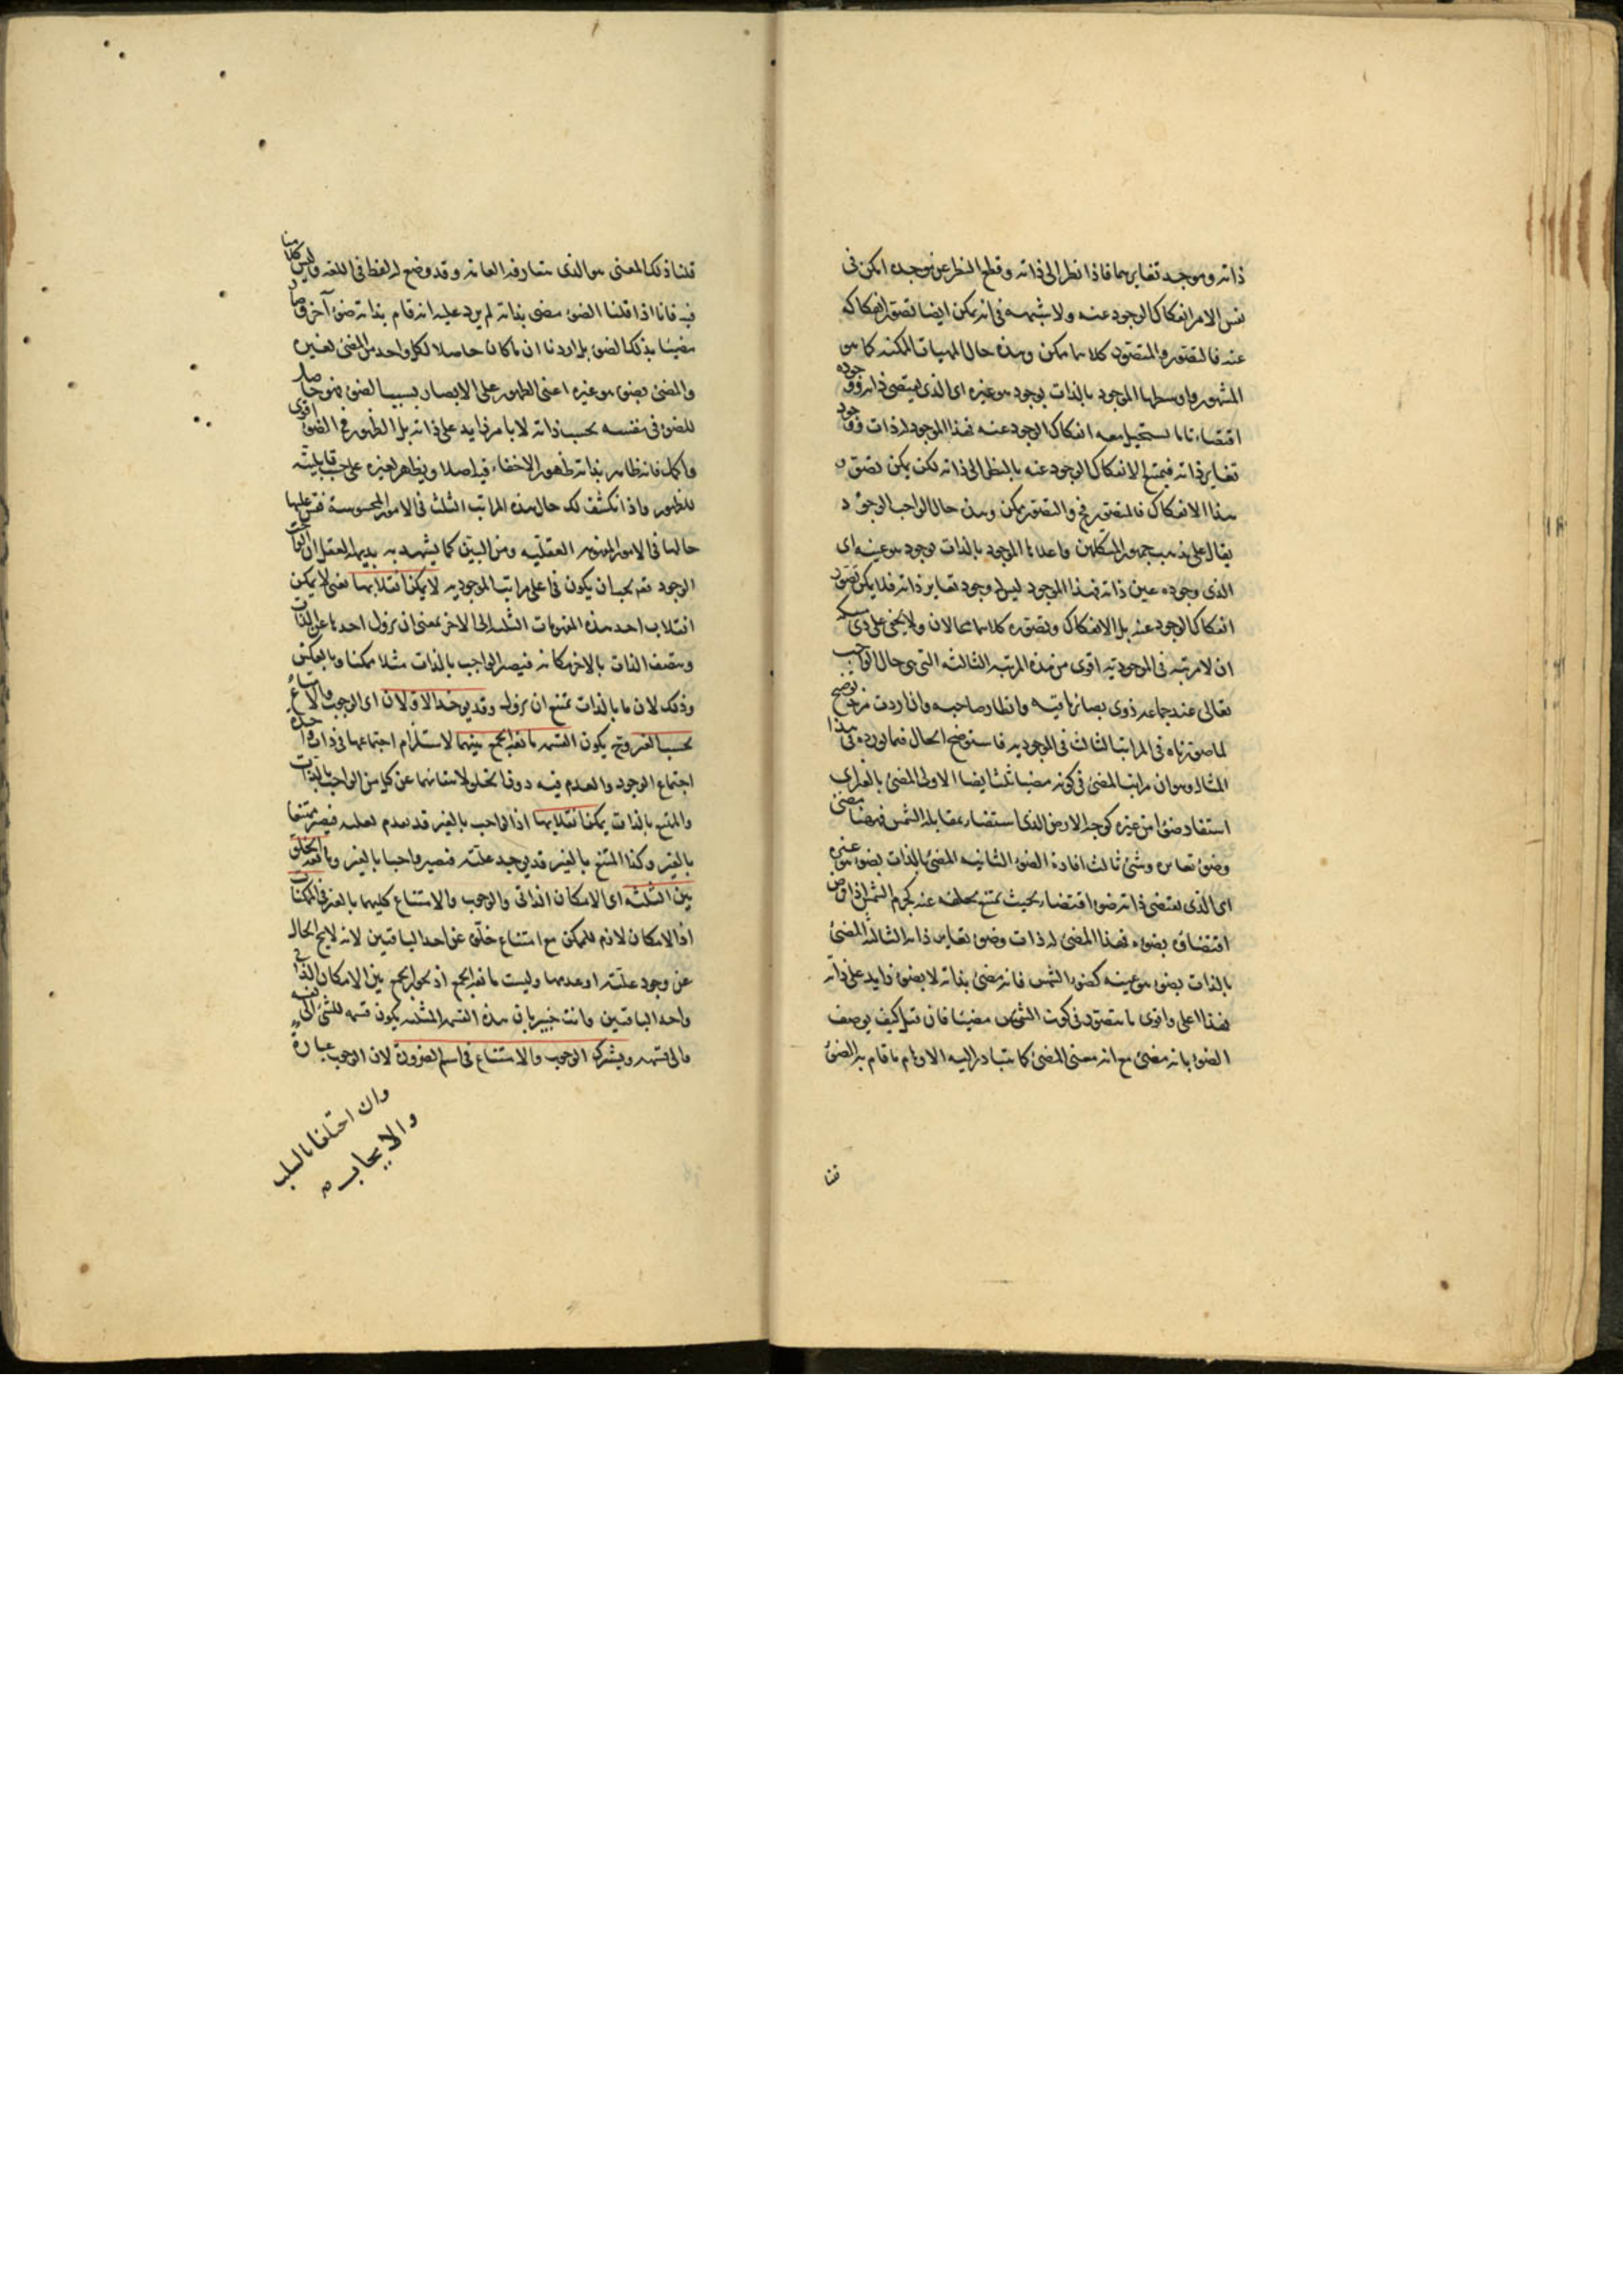 ذاته وموجد تغايرهما فاذا نظر الى ذاته وقطع النظر عن موجده امكن فى
نفس الامر انفكاك الوجود عنه ولا شبهه فى انه يمكن ايضا تصور انفكاكه
عنه فالتصور والمتصور كلاهما ممكن وهذه حال المهيات الممكنه كما هو
المشهور واوسطها الموجود بالذات بوجود هو غيره اى الذى يقتضى ذاته وجوده
اقتضاء تاما يستحيل معه انفكاك الوجود عنه فهذا الموجود له ذات ووجود
تغاير ذاته فيمتنع الانفكاك الوجود عنه بالنظر الى ذاته لكن يمكن تصور
هذا الانفكاك فالمتصور مح والتصور ممكن وهذه حال الواجب الوجود
يقال على مذهب جمهور المتكلمين واعلاها الموجود بالذات بوجود هو عينه اى
الذى وجوده عين ذاته فهذا الموجود ليس له وجود تغاير ذاته فلا يمكن تصور
انفكاك الوجود عنه بل الانفكاك وتصوره كلاهما محالان ولا يخفى على ذى مسكه
ان لا مرتبه فى الموجوديه اقوى من هذه المرتبه الثالثه التى هى حال الواجب
تعالى عند جماعه ذوى بصائر ثاقبه وانظار صائبه وان اردت مزيد توضيح
لما صورناه فى المراتب الثالث فى الموجوديه فاستوضح الحال فيما نورده فى هذا
المثال وهو ان مراتب المضئ فى كونه مضيا ثلث ايضا الاولى المضئ بالغير اى
استفاد ضوءا من غيره كوجه الارض الذى استضاء بمقابله الشمس فههنا مضئ
وضوء تغايره وشئ ثالث افاده الضوء الثانيه المضئ بالذات بضوء هو غيره
اى الذى يقتضى ذاته ضوءا اقتضاء بحيث يمتنع تخلفه عنه كجرم الشمس اذا فرض
اقتضاؤه بضوءه فهذا المضئ له ذات وضوء تغاير ذاته الثالثه المضئ
بالذات بضوء هو عينه كضوء الشمس فانه مضئ بذاته لا بضوء زايد على ذاته
فهذا اعلى واقوى ما يتصور فى كون الشئ مضيئا فان قيل كيف يوصف
الضوء بانه مضئ مع انه معنى المضئ كما يتبادر اليه الاوهام ما قام به الضوء
قلنا
قلنا ذلك المعنى هو الذى يتعارفه العامه وقد وضع له لفظ فى اللغه وليس كلامنا
فيه فانا اذا قلنا الضوء مضئ بذاته لم يرد عليه انه قام بذاته ضوء آخر وصار
مضيئا بذلك الضوء بل اردنا ان ما كان حاصلا لكل واحد من المضئ بغيره
والمضئ بضوء هو غيره اعنى الظهور على الابصار بسبب الضوء فهو حاصل
للضوء فى نفسه بحسب ذاته لا بامر زايد على ذاته بل الظهور فى الضوء اقوى
واكمل فانه ظاهر بذاته ظهورا لا خفاء فيه اصلا ويظهر لغيره على حسب قابليته
للظهور واذا انكشف لك حال هذه المراتب الثلث فى الامور المحسوسة فقس عليها
حالها فى الامور المعنويه العقليه ومن البين كما يشهد به بديهه العقل ان الواجب
الوجود تعـ يجب ان يكون فى اعلى مراتب الموجوديه لا يمكن انقلابها يعنى لا يمكن
انقلاب احد هذه المفهومات الثلثه الى الاخر بمعنى ان يزول احدها عن الذات
ويتصف الذات بالاخر مكانه فيصير الواجب بالذات مثلا ممكنا وبالعكس
وذلك لان ما بالذات يمتنع ان يزول وقد يوخذ الاولان اى الوجوب والامتناع
بحسب الغير وح يكون القسمه مانعة الجمع بينهما لاستلزام اجتماعهما فى ذات واحده
اجتماع الوجود والعدم فيه دون الخلو لانتفائهما عن كل من الواجب بالذات
والممتنع بالذات يمكن انقلابها اذ الواجب بالغير قد يعدم بعلته فيصير ممتنعا
بالغير وكذا الممتنع بالغير قد يوجد علته فيصير واجبا بالغير ومانعة الخلو
بين الثلثه اى الامكان الذاتى والوجوب والامتناع كليهما بالغير فى الممكنات
اذ الامكان لازم للممكن مع امتناع خلوه عن احد الباقيين لانه لا يخ الحال
عن وجود علته او عدمها وليست مانعة الجمع اذ يجوز الجمع بين الامكان الذاتى
واحد الباقيين وانت خبير بان هذه القسمه المثلثه يكون قسمه للشئ الى نفسه
والى قسيمه ويشترك الوجوب والامتناع فى اسم الضرورة لان الوجوب عبارة
وان اختلفا بالسلب
والايجاب